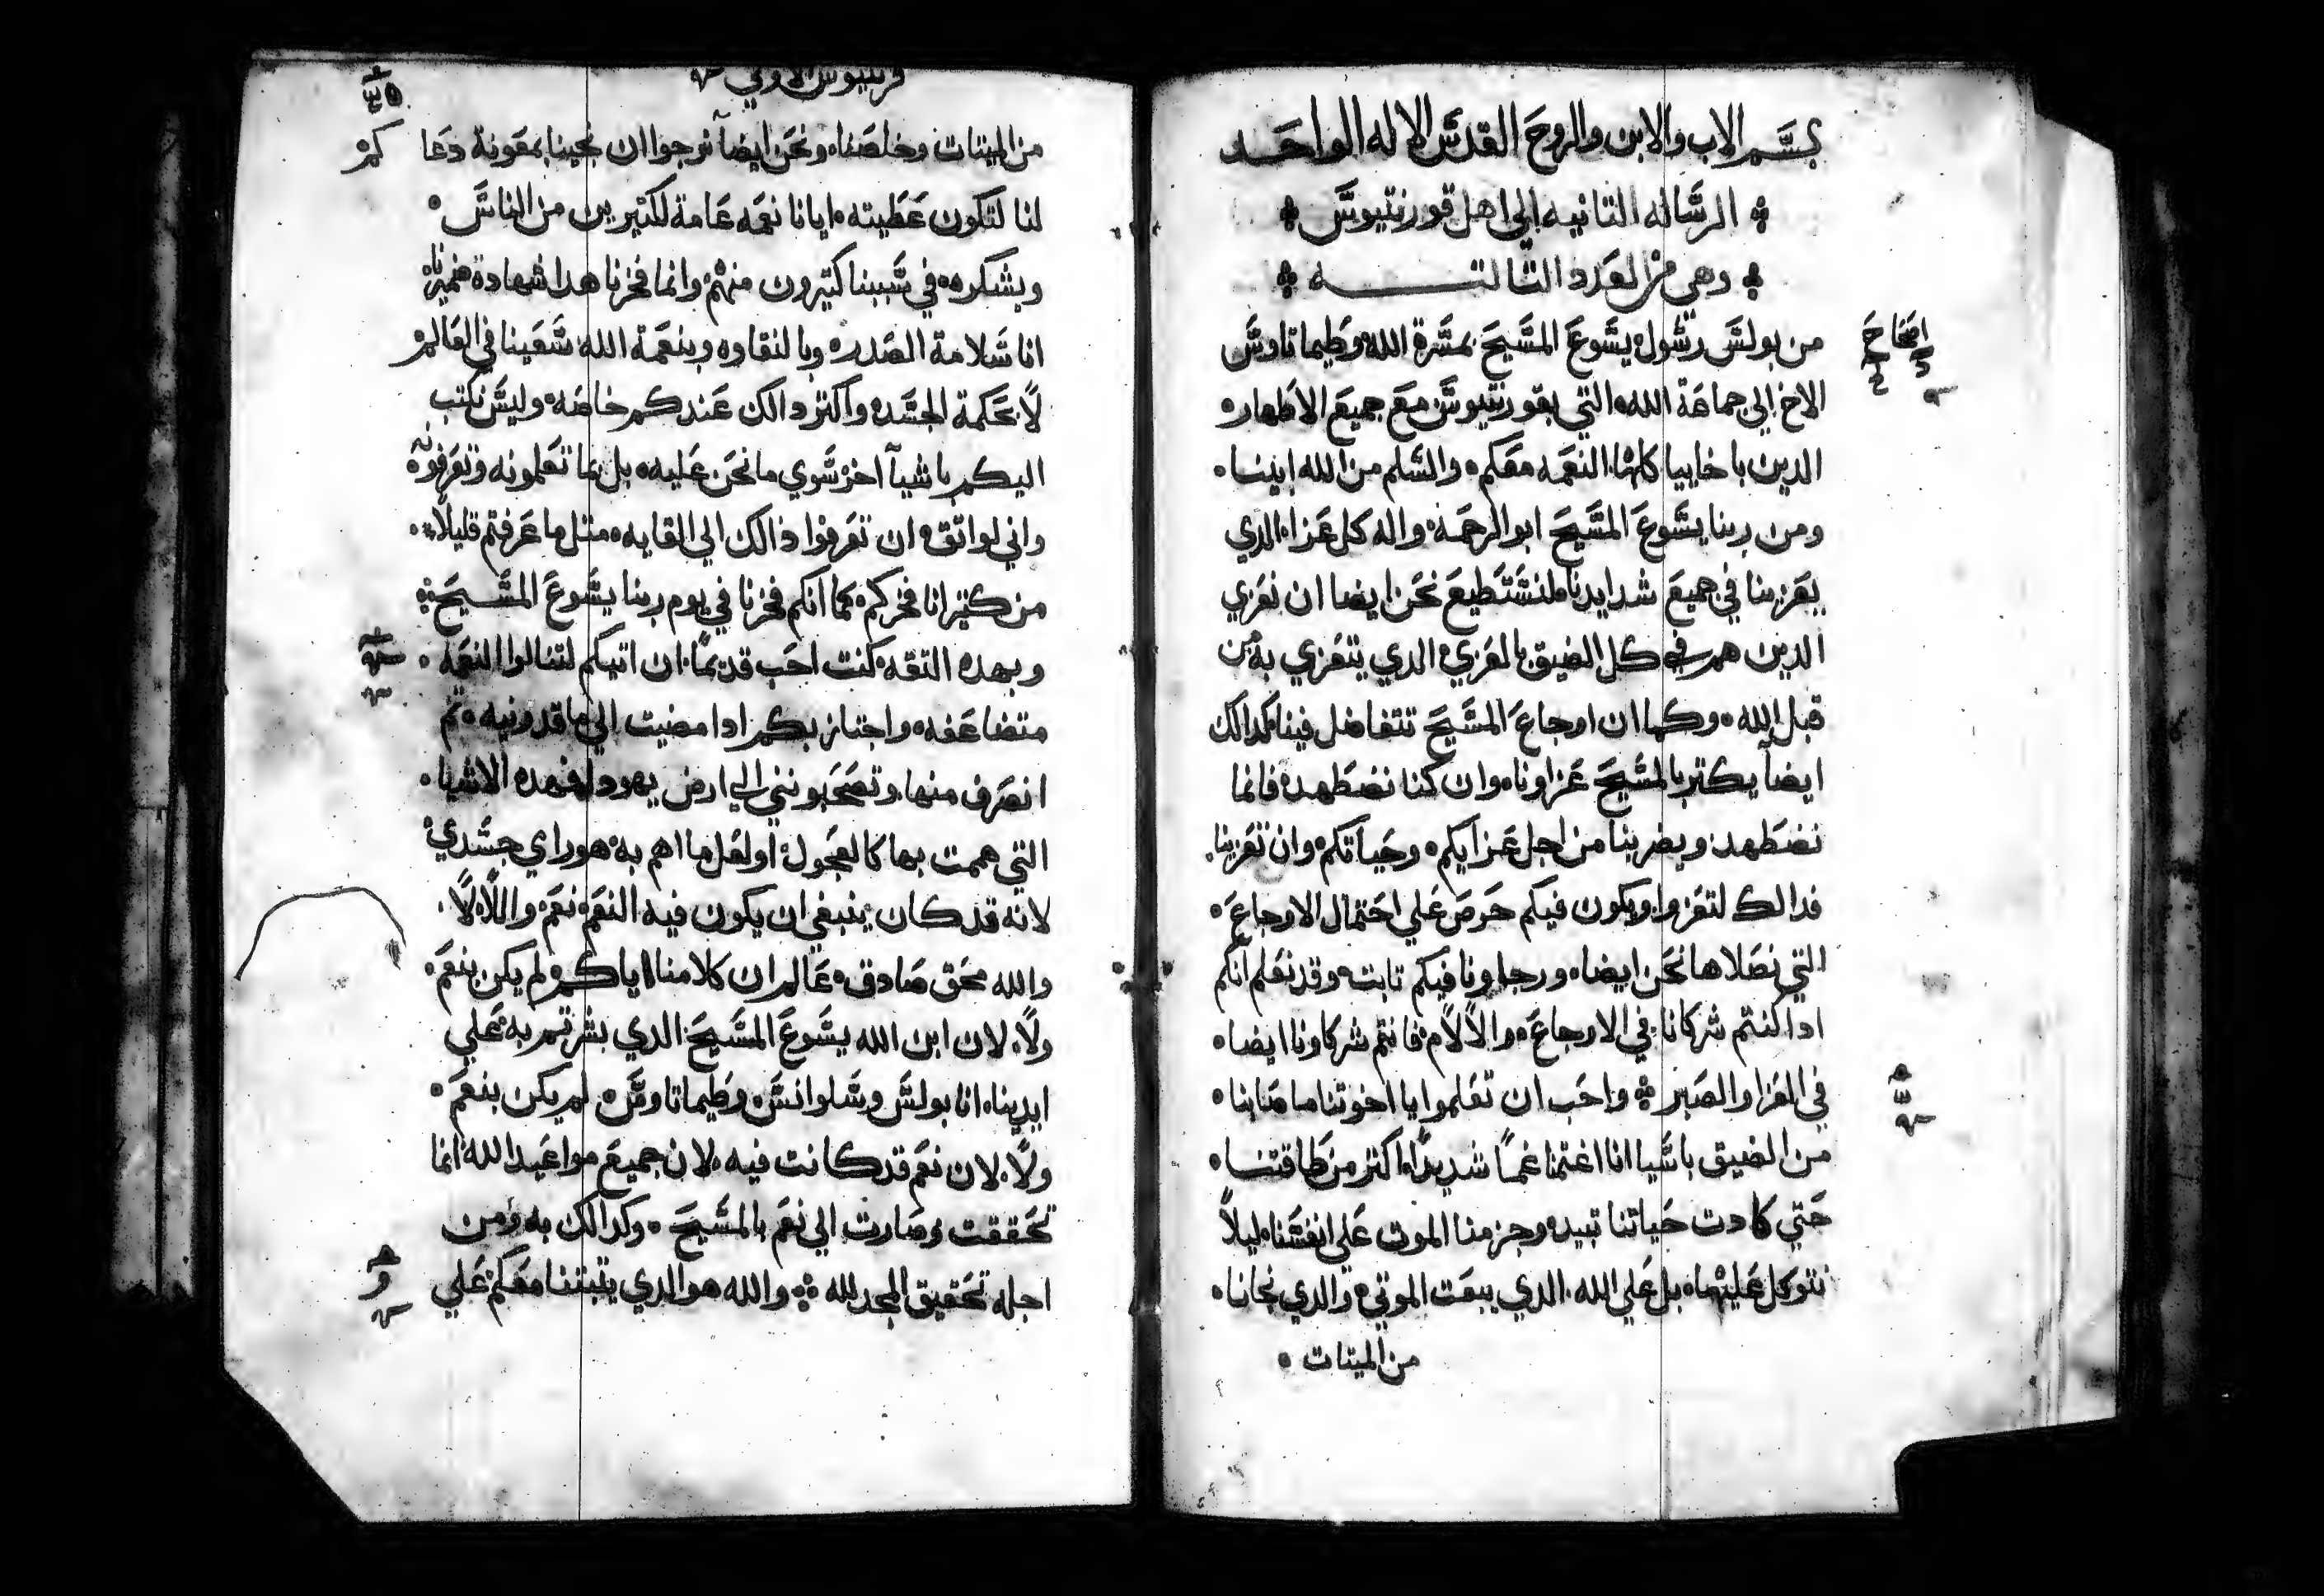 بسم الاب والابن والروح القدس الاله الواحد
الرساله التانيه الي اهل قورنتيوس
وهي من العدد التالته
من بولس رسول يسوع المسيح بمسرة الله وطيماتاوس
اصحاح
الاخ الي جماعة الله التي بقورنتيوس مع جميع الاطهار
الدين باخاييا كلها النعمه معكم والسلم من الله ابينا
ومن ربنا يسوع المسيح ابو الرحمه واله كل عزا الدي
يعزينا في جميع شدايدنا لنستطيع نحن ايضا ان نعزي
الدين هم في كل الضيق بالعزي الدي يتعزي به من
قبل الله وكما ان اوجاع المسيح تتفاضل فينا كدالك
ايضاً يكتر بالمسيح عزاونا وان كنا نضطهد فانما
نضطهد ويضربنا من اجل عزايكم وحياتكم وان تعزينا
فدالك لتعزوا ويكون فيكم حرص علي احتمال الاوجاع
التي نصلاها نحن ايضا ورجاونا فيكم تابت وقد نعلم انكم
ادا كنتم شركانا في الاوجاع والالام فانتم شركاونا ايضا
في العزا والصبر واحب ان تعلموا يا اخوتنا ما صابنا
من الضيق باسيا انا اغتمنا غماً شديداً اكتر من طاقتنا
حتي كادت حياتنا تبيد وجزمنا الموت علي انفسنا ليلاً
نتوكل عليها بل علي الله الدي يبعت الموتي والدي نجانا
من الميتات
قرنتيوس الاولي
من الميتات وخلصنا ونحن ايضاً نرجوا ان نجينا بمعونة دعا كم
لنا لتكون عطيته ايانا نعمه عامة لكتيرين من الناس
ويشكره في سببنا كتيرون منهم وانما فخرنا هدا شهادة ضميرنا
انا سلامة الصدر وبالنقاوه وبنعمة الله سعينا في العالم
لا بحكمة الجسد واكتر دالك عندكم خاصه وليس نكتب
اليكم باشياً اخر سوي ما نحن عليه بل بما تعلمونه وتعرفونه
واني لواتق ان تعرفوا ذالك الي الغايه متل ما عرفتم قليلاً
من كتير انا فخركم كما انكم فخرنا في يوم ربنا يسوع المسيح
وبهده التقه كنت احب قديماً ان اتيكم لتنالوا النعمه
متضاعفه واجتاز بكم ادا مضيت الي ماقدونيه تم
انصرف منها وتصحبونني الي ارض يهودا فهده الاشيا
التي هممت بها كالعجول اولعل ما اهم به هو راي جسدي
لانه قد كان ينبغي ان يكون فيه النعم نعم واللا لا
والله محق صادق عالم ان كلامنا اياكم لم يكن بنعم
ولا لان ابن الله يسوع المسيح الدي بشرتم به علي
ايدينا انا بولس وسلوانس وطيماتاوس لم يكن بنعم
ولا لان نعم قد كانت فيه لان جميع مواعيد الله انما
تحققت وصارت الي نعم بالمسيح وكدالك به ومن
اجله تحقيق المجد لله والله هو الدي يتبتنا معكم علي